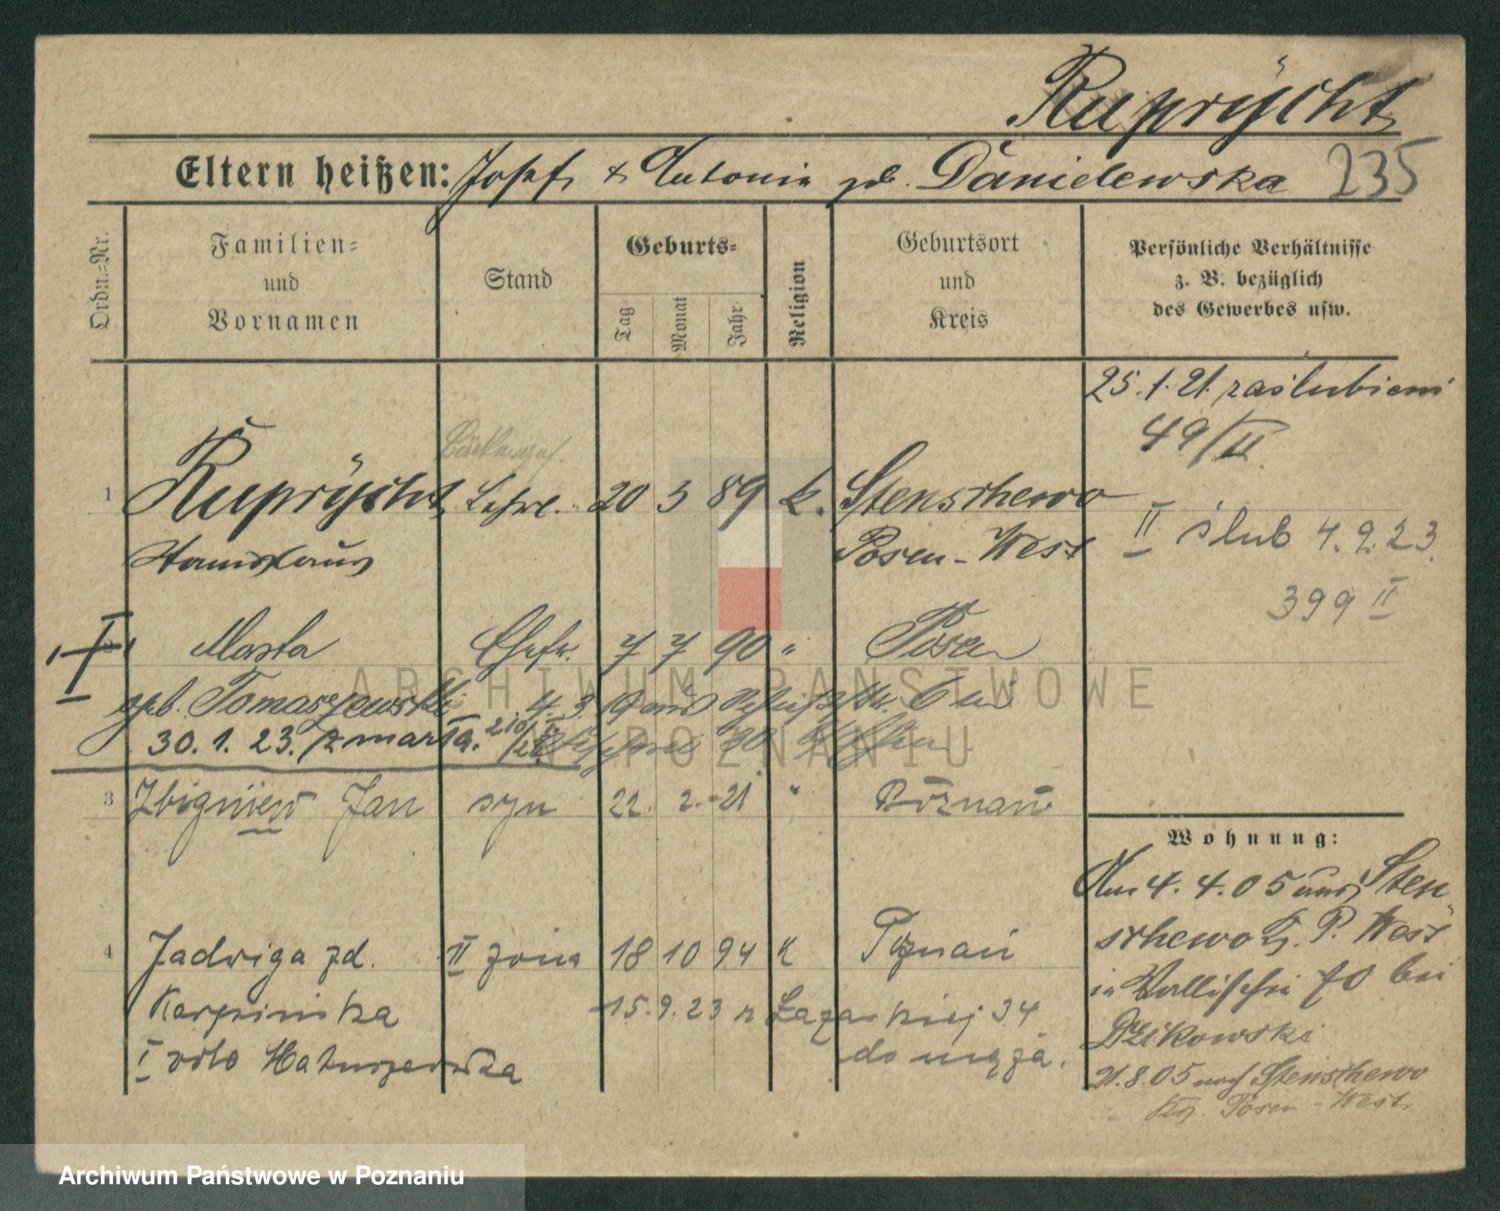 Ruprÿcht
Eltern heißen: Josef & Antonia geb. Danielewska 235
Ordn.-Nr.
Familien- und Vornamen
Stand
Geburts-
Tag
Monat
Jahr
Religion
Geburtsort und Kreis
Persönliche Verhältnisse z. B. bezüglich des Gewerbes usw.
25. 1. 21. zaślubieni
49/II
1 Ruprÿcht Lehrl. 20 3 89 k. Stenschewo
Stanislaus Posen-West
II ślub 4.9.23.
399 II
Marta Ehefr. 7 7 90 " Posen
geb. Tomaszewski 4.3.19 aus
30. 1. 23. zmarła.
3 Zbigniew Jan syn 22. 2. 21 " Poznań
4 Jadwiga zd. II żona 18 10 94 K Poznań
Karpińska 15.9.23 z Łazarskiej 34
I voto Matuszewska do męża.
Wohnung:
Am 4. 4. 05 aus Sten-
schewo Kr. P. West
in Wallischei 70 bei
Dzikowski
21.8.05 nach Stenschewo
Kr. Posen-West.
ARCHIWUM PAŃSTWOWE
W POZNANIU
Archiwum Państwowe w Poznaniu